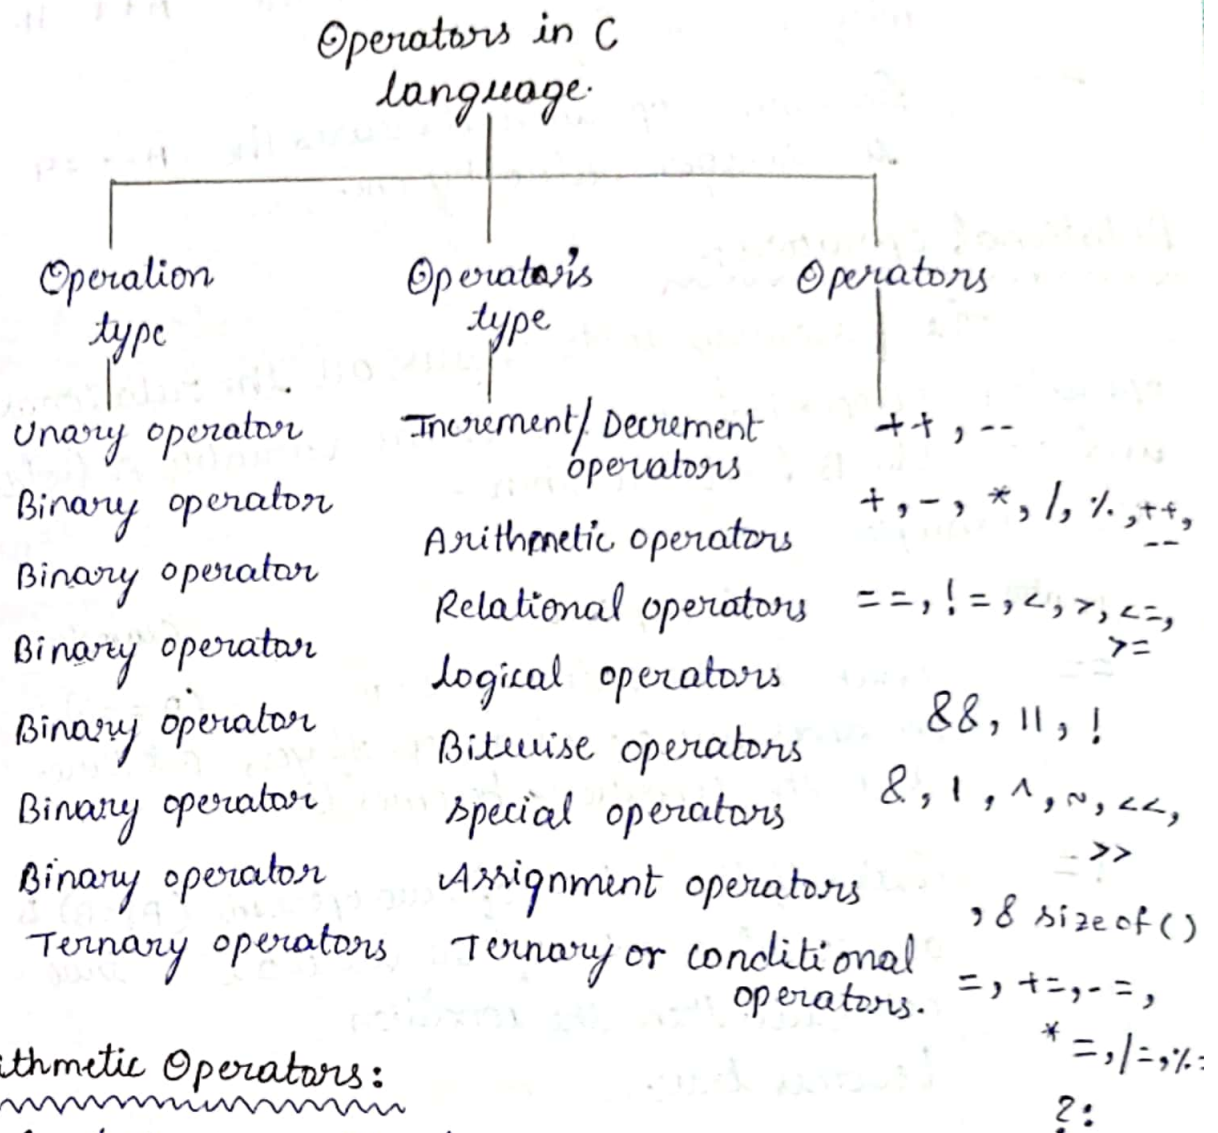 Operators in C
language.
Operation
type
Operator's
type
Operators
Unary operator
Binary operator
Binary operator
Binary operator
Binary operator
Binary operator
Binary operator
Ternary operators
Increment/Decrement
operators
Arithmetic operators
Relational operators
Logical operators
Bitwise operators
Special operators
Assignment operators
Ternary or conditional
operators.
++, --
+, -, *, /, %, ++,
--
==, !=, <, >, <=,
>=
&&, ||, !
&, |, ^, ~, <<,
>>
, & sizeof()
=, +=, -=,
*=, /=, %=
?:
ithmetic Operators: